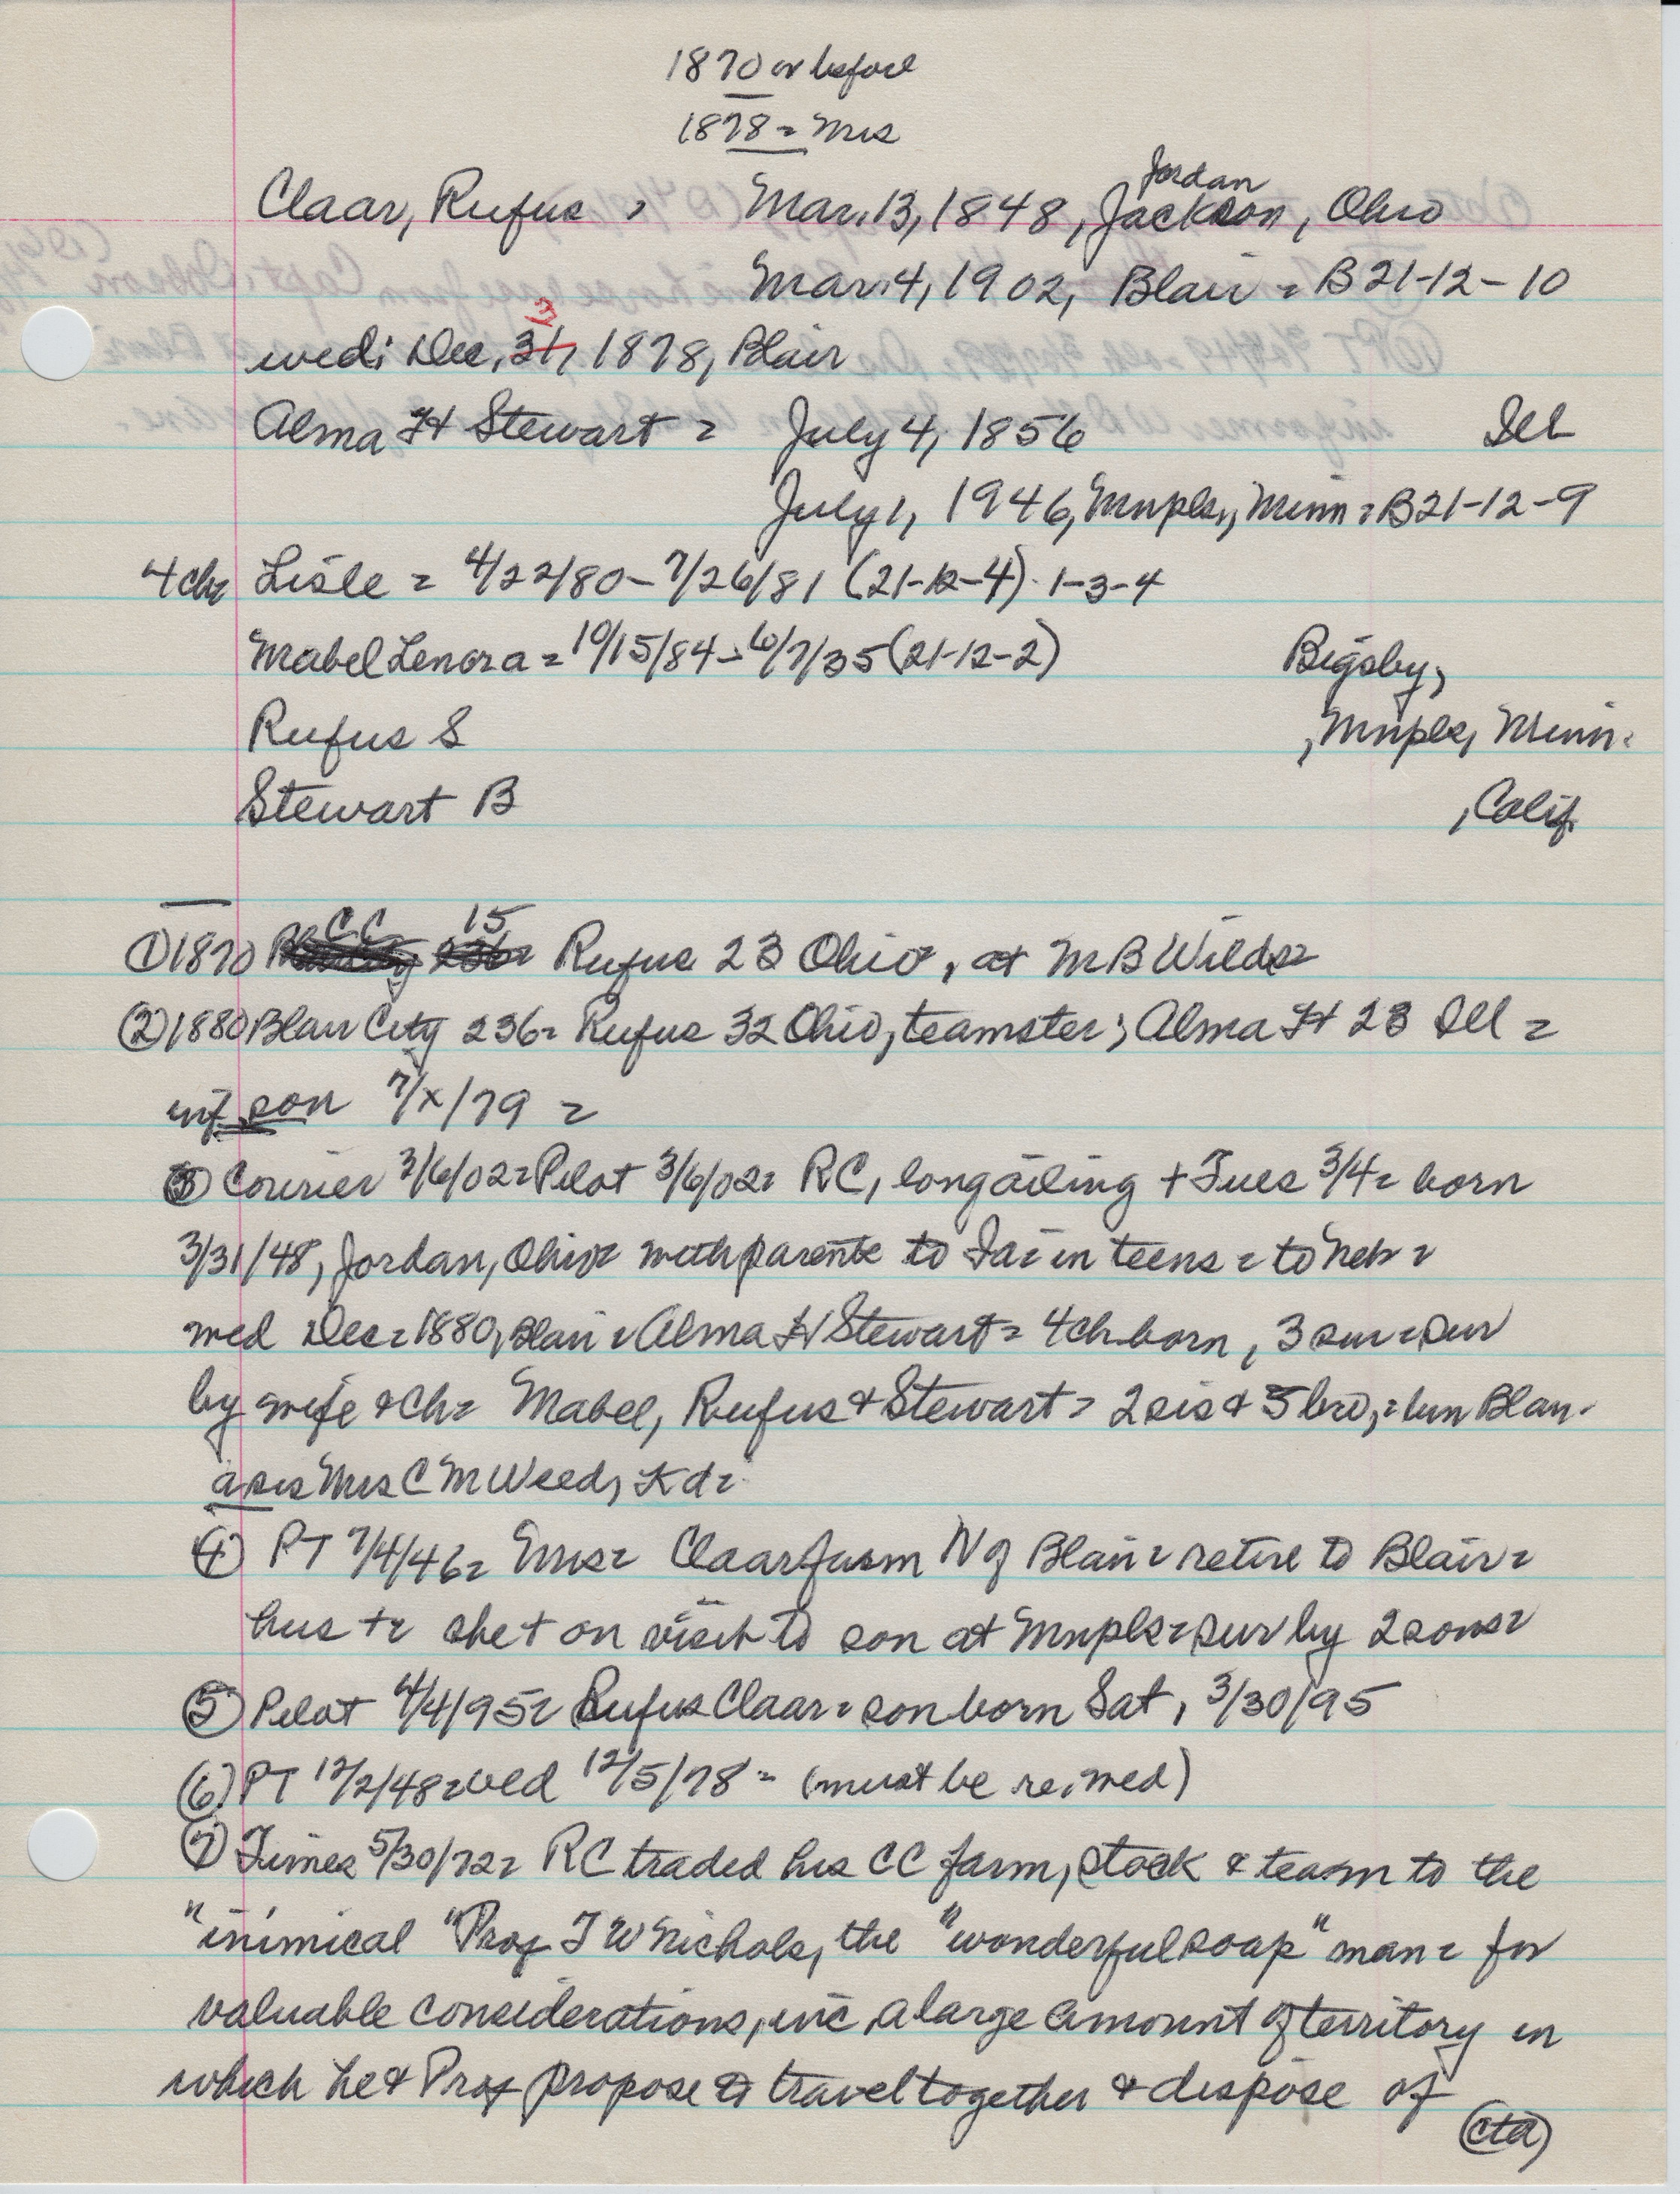 1870 or before
1878 = Mrs
Jordan
Claar, Rufus, Mar. 13, 1848, Jackson, Ohio
Mar. 4, 1902, Blair = B21-12-10
3
wed: Dec. 31, 1878, Blair
Alma H Stewart = July 4, 1856 Ill
July 1, 1946, Mnpls, Minn = B21-12-9
4ch= Lisle = 4/22/80-7/26/81 (21-12-4). 1-3-4
Mabel Lenora = 10/15/84-6/7/35 (21-12-2) Bigsby,
Rufus S , Mnpls, Minn.
Stewart B , Calif.
CC 15
① 1870 236= Rufus 23 Ohio, at M B Wilds=
② 1880 Blair City 236= Rufus 32 Ohio, teamster; Alma H 23 Ill =
inf son 7/x/79 =
③ Courier 3/6/02= Pilot 3/6/02= RC, long ailing + Tues 3/4= born
3/31/48, Jordan, Ohio= with parents to Ia= in teens = to Neb =
wed Dec= 1880, Blair = Alma H Stewart= 4ch born, 3 sur = sur
by wife & ch= Mabel, Rufus & Stewart= 2 sis & 5 bro, = bur Blair.
a sis Mrs C M Weed, Kd=
④ PT 7/4/46= Mrs= Claar farm N of Blair = retire to Blair =
hus += she + on visit to son at Mnpls= sur by 2 sons=
⑤ Pilot 4/4/95= Rufus Claar = son born Sat, 3/30/95
⑥ PT 12/2/48= wed 12/5/78 = (must be re, wed)
⑦ Times 5/30/72= RC traded his CC farm, stock & team to the
"inimical" Prof T W Nichols, the "wonderful soap" man = for
valuable considerations, inc, a large amount of territory in
which he & Prof propose to travel together & dispose of
(ctd)